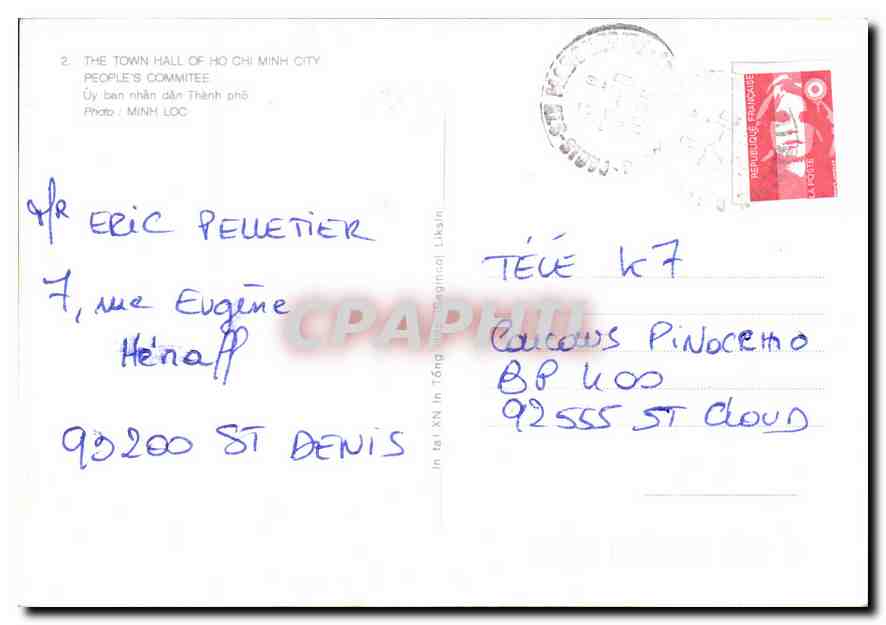 2. THE TOWN HALL OF HO CHI MINH CITY
PEOPLE'S COMMITEE
Ủy ban nhân dân Thành phố
Photo : MINH LOC
REPUBLIQUE FRANÇAISE
LA POSTE
ERIC PELLETIER
7, rue Eugène
Hénaff
93200 ST DENIS
In tại XN In Tổng
Liksin
CPAPHIL
TÉLÉ K7
CONCOURS PINOCCHIO
BP 400
92555 ST CLOUD